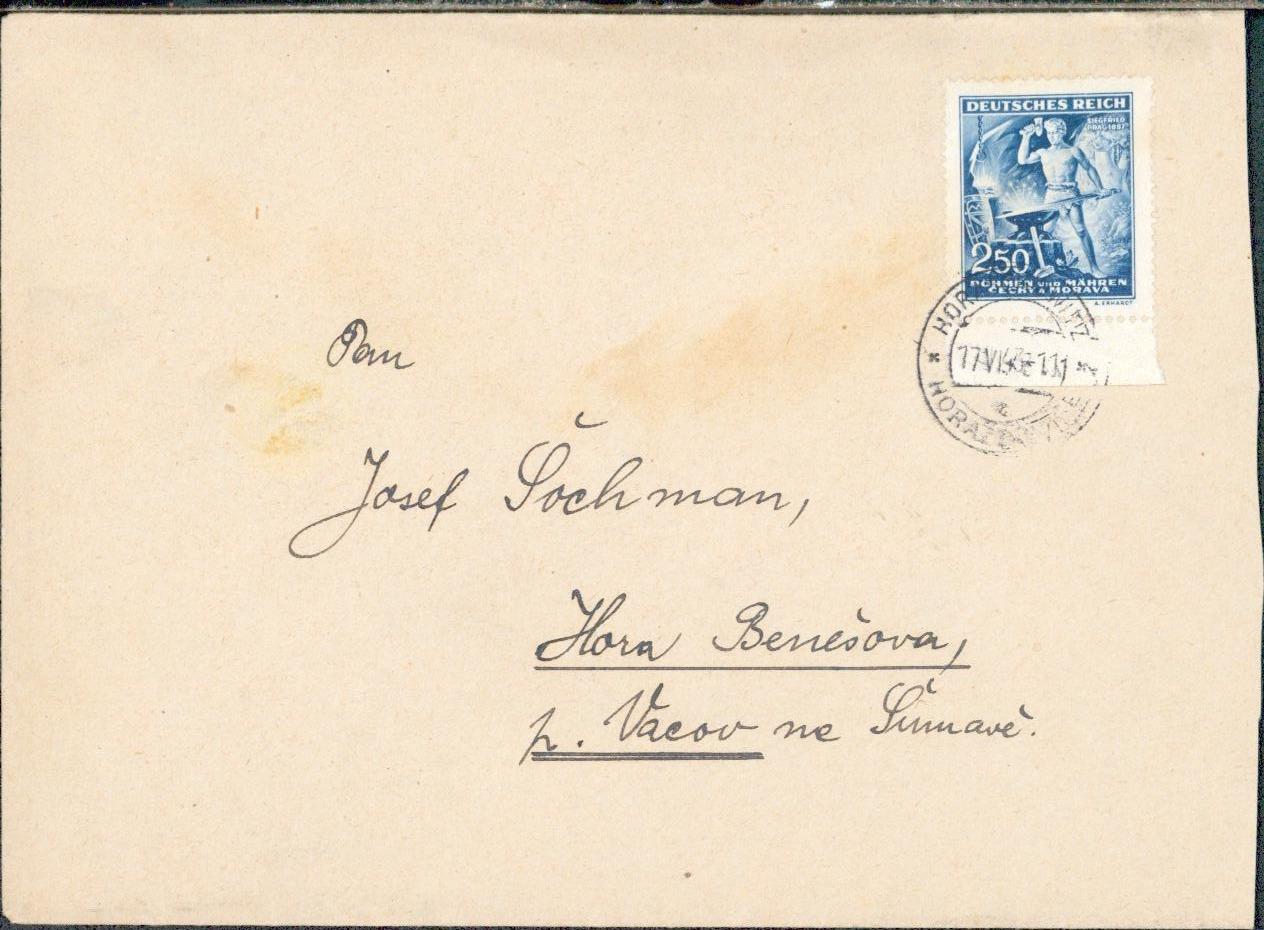 DEUTSCHES REICH
SIEGFRIED
PRAG 1887
2 50
BÖHMEN UND MÄHREN
ČECHY A MORAVA
A. ERHARDT
Pan
Josef Šochman,
Hora Benešova,
p. Vacov na Šumavě.